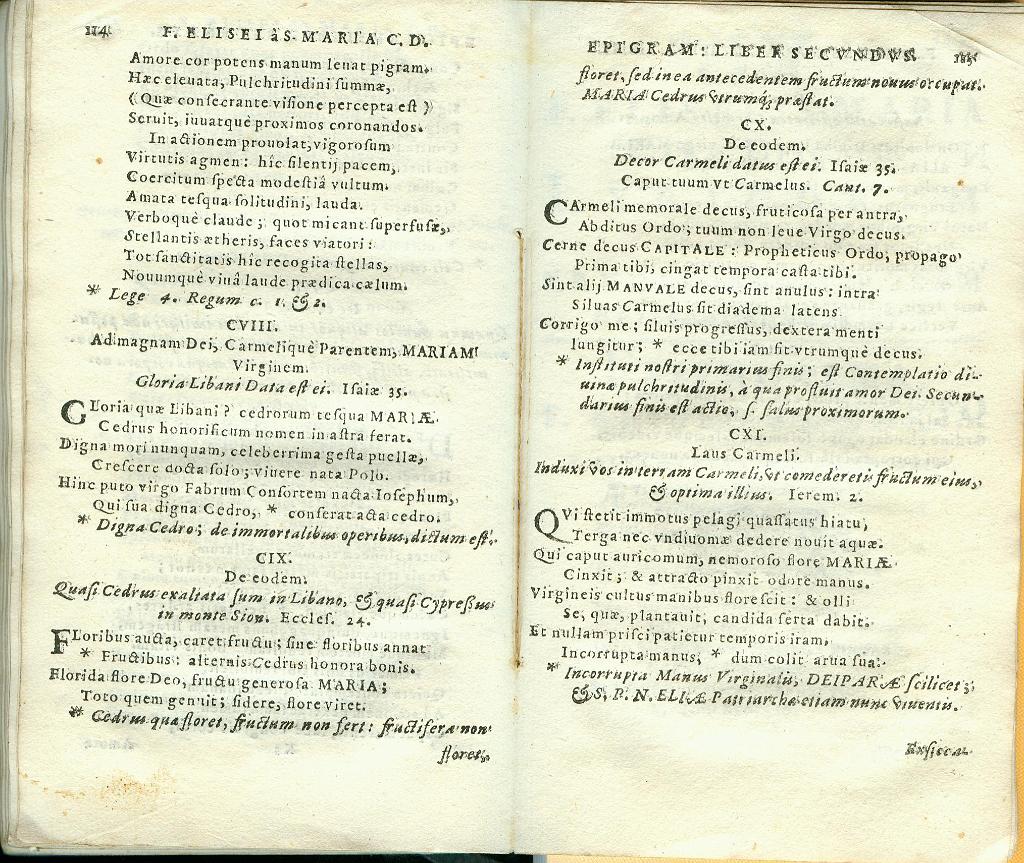 114 F. ELISEI às MARIA C. D.
Amore cor potens manum leuat pigram.
Hæc eleuata, Pulchritudini summæ,
(Quæ consecrante visione percepta est)
Seruit, iuuatquè proximos coronandos.
In actionem prouolat, vigorosum
Virtutis agmen: hîc silentij pacem,
Coercitum specta modestiâ vultum.
Amata tesqua solitudini, lauda.
Verboquè claude; quot micant superfusæ,
Stellantis ætheris, faces viatori:
Tot sanctitatis hîc recogita stellas,
Nouumquè viuâ laude prædica cælum.
* Lege 4. Regum c. 1. & 2.
CVIII.
Ad magnam Dei, Carmeliquè Parentem, MARIAM
Virginem.
Gloria Libani Data est ei. Isaiæ 35.
GLoria quæ Libani? cedrorum tesqua MARIÆ.
Cedrus honorificum nomen in astra ferat.
Digna mori nunquam, celeberrima gesta puellæ,
Crescere docta solo; viuere nata Polo.
Hinc puto virgo Fabrum Consortem nacta Iosephum,
Qui sua digna Cedro, * conserat acta cedro.
* Digna Cedro; de immortalibus operibus, dictum est.
CIX.
De eodem.
Quasi Cedrus exaltata sum in Libano, & quasi Cypressus
in monte Sion. Eccles. 24.
FLoribus aucta, caret fructu; sine floribus annat
* Fructibus: alternis Cedrus honora bonis.
Florida flore Deo, fructu generosa MARIA;
Toto quem genuit; sidere, flore viret.
* Cedrus quæ floret, fructum non fert: fructifera non
floret,
EPIGRAM: LIBER SECVNDVS. 115
floret, sed in ea antecedentem fructum nouus occupat.
MARIA Cedrus vtrumq; præstat.
CX.
De eodem.
Decor Carmeli datus est ei. Isaiæ 35.
Caput tuum vt Carmelus. Cant. 7.
CArmeli memorale decus, fruticosa per antra,
Abditus Ordo; tuum non leue Virgo decus.
Cerne decus CAPITALE: Propheticus Ordo, propago
Prima tibi, cingat tempora casta tibi.
Sint alij MANVALE decus, sint anulus: intra
Siluas Carmelus sit diadema latens.
Corrigo me; siluis progressus, dextera menti
Iungitur; * ecce tibi iam fit vtrumque decus.
* Instituti nostri primarius finis; est Contemplatio di-
uinæ pulchritudinis, à qua profluit amor Dei. Secun-
darius finis est actio, s. salus proximorum.
CXI.
Laus Carmeli.
Induxi vos in terram Carmeli, vt comederetis fructum eius,
& optima illius. Ierem. 2.
QVi stetit immotus pelagi quassatus hiatu,
Terga nec vndiuomæ dedere nouit aquæ.
Qui caput auricomum, nemoroso flore MARIÆ
Cinxit; & attracto pinxit odore manus.
Virgineis cultus manibus florescit: & olli
Se, quæ, plantauit, candida serta dabit.
Et nullam prisci patietur temporis iram,
Incorrupta manus, * dum colit arua sua.
* Incorrupta Manus Virginalis, DEIPARÆ scilicet;
& S. P. N. ELIÆ Patriarchæ etiam nunc viuentis.
Exsicca-